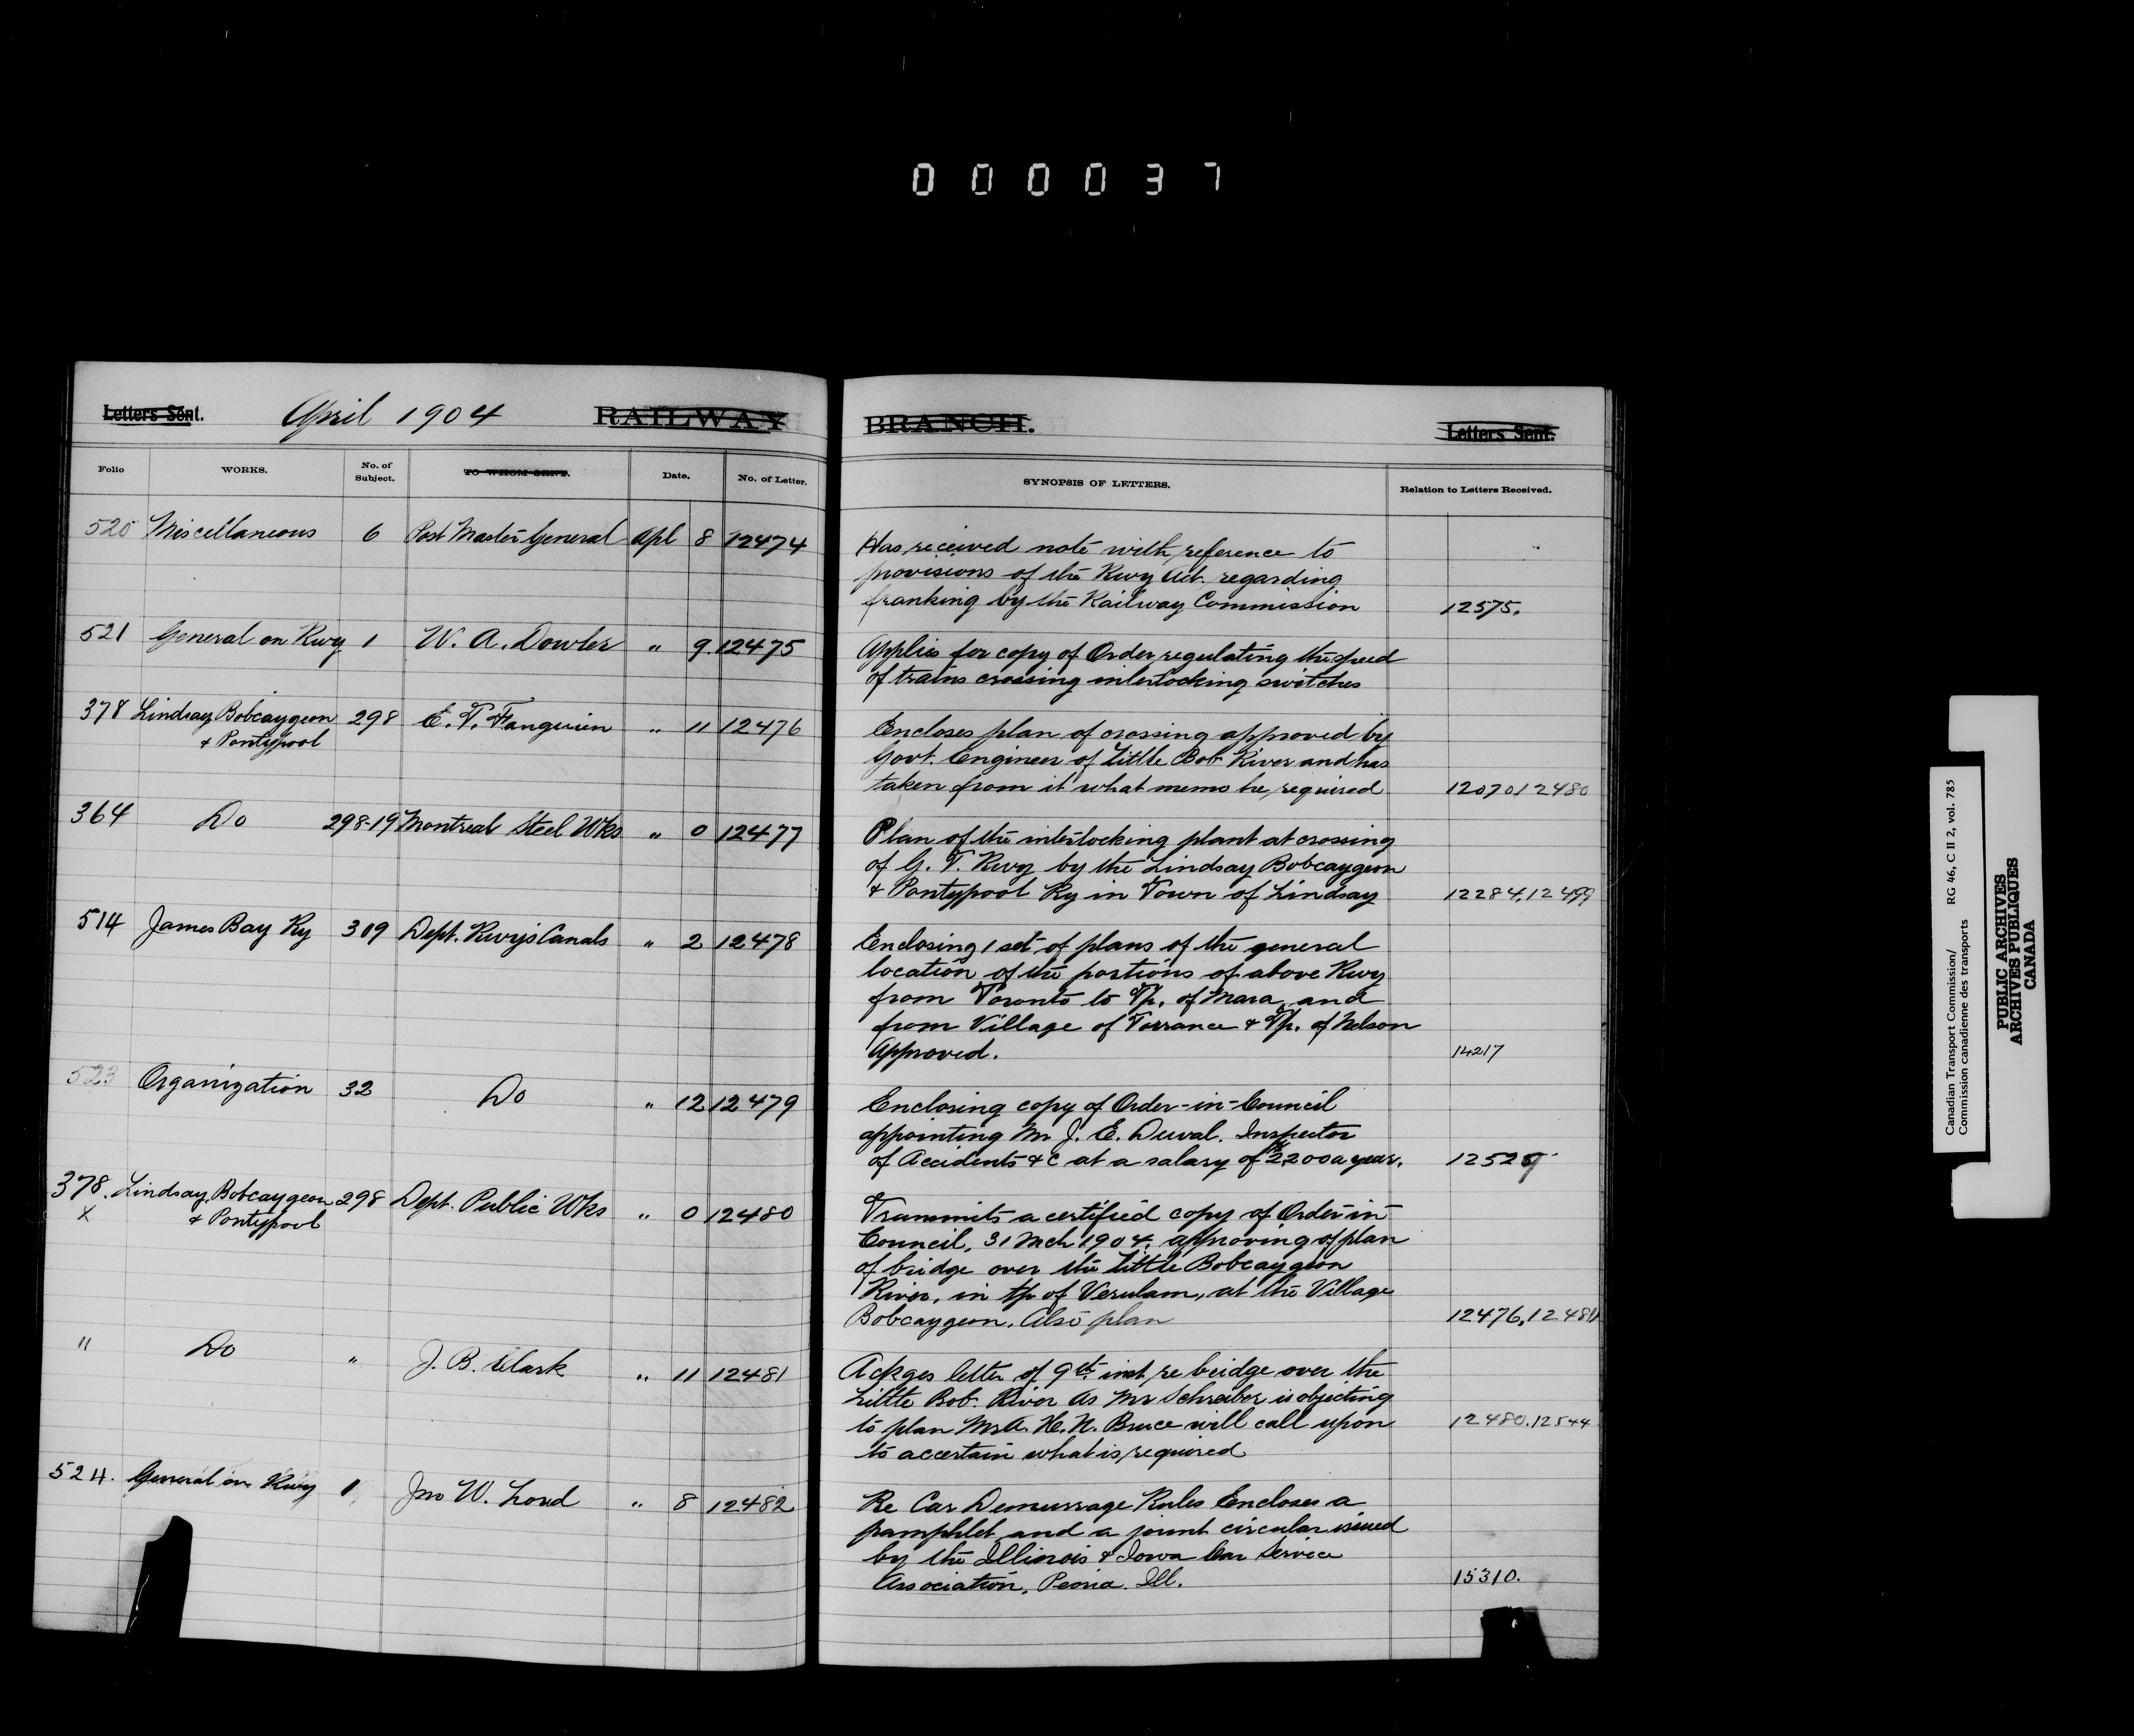 000037
Letters Sent. April 1904 RAILWAY BRANCH. Letters Sent.
Folio WORKS. No. of Subject. TO WHOM SENT. Date. No. of Letter. SYNOPSIS OF LETTERS. Relation to Letters Received.
520 Miscellaneous 6 Post Master General Apl 8 12474 Has received note with reference to
provisions of the Rwy Act. regarding
franking by the Railway Commission 12575.
521 General on Rwy 1 W. A. Dowler " 9. 12475 Applies for copy of Order regulating the speed
of trains crossing interlocking switches
378 Lindsay Bobcaygeon 298 E. T. " 11 12476 Encloses plan of crossing approved by
& Pontypool Govt. Engineer of Little Bob River and has
taken from it what memo he required 12070 12480
364 Do 298-19 Montreal Steel Wks " 0 12477 Plan of the interlocking plant at crossing
of G. T. Rwy by the Lindsay Bobcaygeon
& Pontypool Ry in Town of Lindsay 12284,12499
514 James Bay Ry 309 Dept. Rwys Canals " 2 12478 Enclosing 1 set of plans of the general
location of the portions of above Rwy
from Toronto to Tp. of Mara, and
from Village of Torrance & Tp. of Nelson
Approved. 14217
523 Organization 32 Do " 12 12479 Enclosing copy of Order-in-Council
appointing Mr J. E. Duval. Inspector
of Accidents &c at a salary of 2200 a year.
378. Lindsay, Bobcaygeon 298 Dept. Public Wks " 0 12480 Transmits a certified copy of Order-in-
X & Pontypool Council, 31 Mch 1904, approving of plan
of bridge over the Little Bobcaygeon
River, in tp of Verulam, at the Village
Bobcaygeon. Also plan 12476,12481
" Do " J. B. Clark " 11 12481 Ackges letter of 9th inst re bridge over the
Little Bob. River As Mr Schreiber is objecting
to plan Mr A. H. N. Bruce will call upon 12480.12544
to accertain what is required
524. General on Rwy 1 Jno W. Loud " 8 12482 Re Car Demurrage Rules Encloses a
pamphlet and a joint circular issued
by the Illinois & Iowa Car Service
Association, Peoria. Ill. 15310.
Canadian Transport Commission/ RG 46, C II 2, vol. 785
Commission canadienne des transports
PUBLIC ARCHIVES
ARCHIVES PUBLIQUES
CANADA